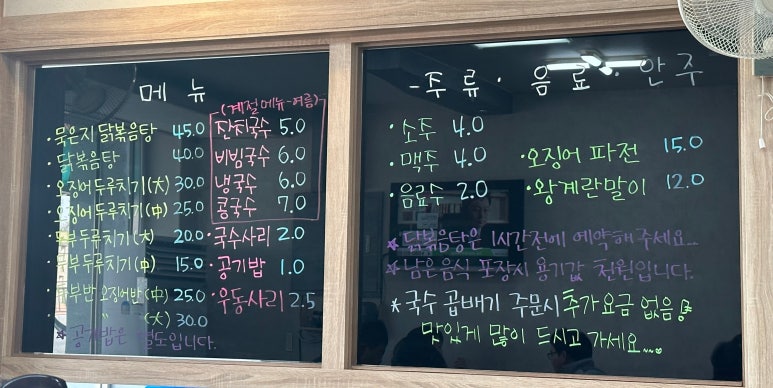 메 뉴
• 묵은지 닭볶음탕 45.0
• 닭볶음탕 40.0
• 오징어 두루치기 (大) 30.0
• 오징어 두루치기 (中) 25.0
• 두부두루치기 (大) 20.0
• 두부두루치기 (中) 15.0
• 두부반 오징어반 (中) 25.0
" (大) 30.0
* 공기밥은 별도입니다.
(계절메뉴-여름)
잔치국수 5.0
비빔국수 6.0
냉국수 6.0
콩국수 7.0
• 국수사리 2.0
• 공기밥 1.0
• 우동사리 2.5
- 주류 · 음료 · 안주
• 소주 4.0
• 맥주 4.0
• 음료수 2.0
• 오징어 파전 15.0
• 왕계란말이 12.0
* 닭볶음탕은 1시간전에 예약해주세요...
* 남은음식 포장시 용기값 천원입니다.
* 국수 곱배기 주문시 추가요금 없음
맛있게 많이 드시고 가세요~~